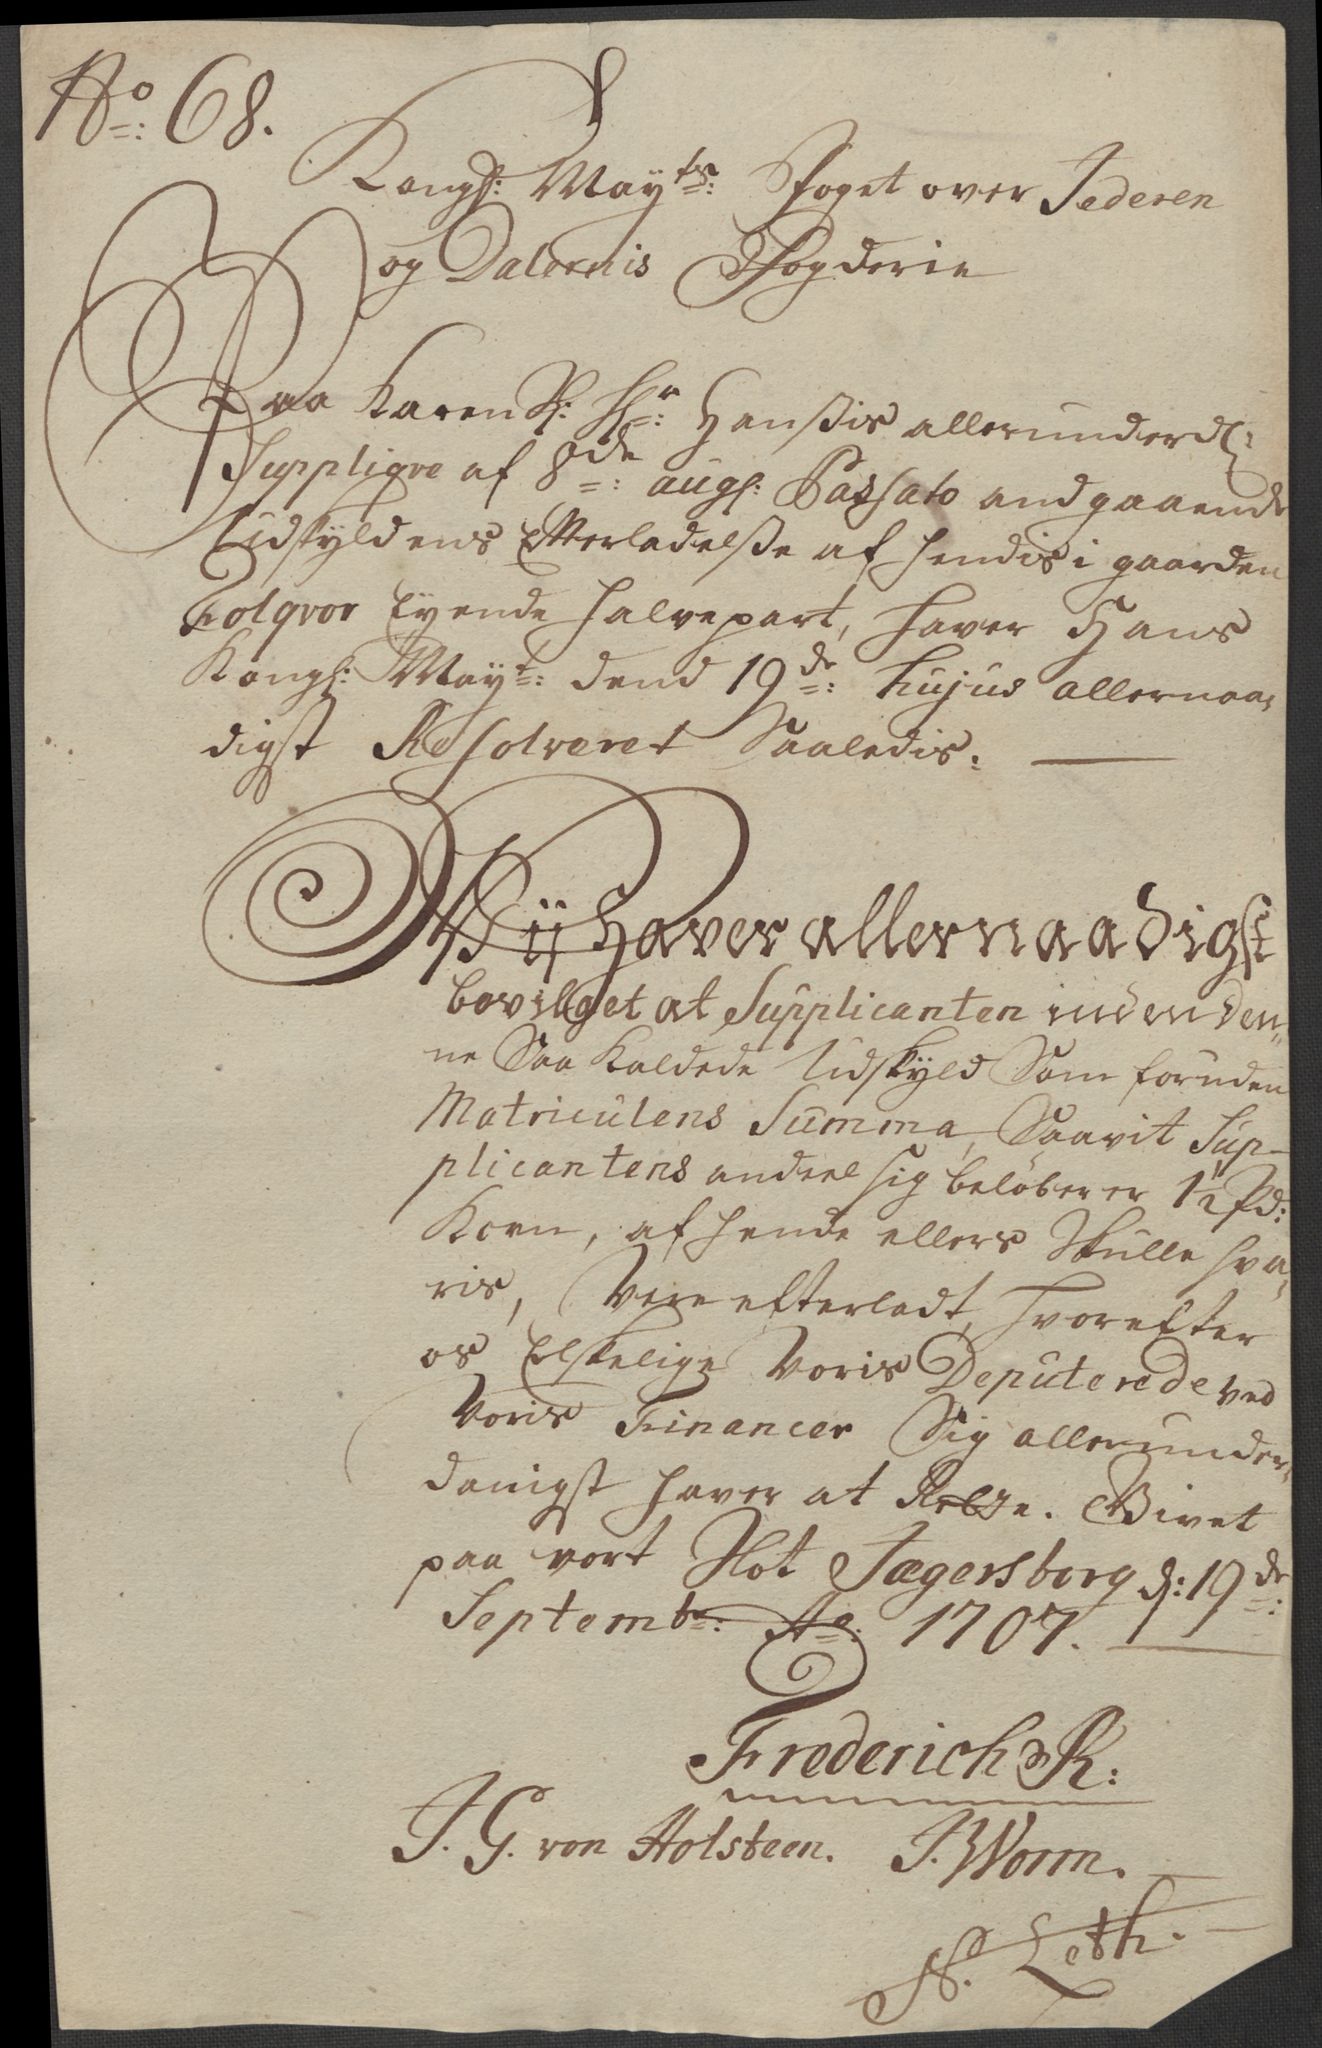 No: 68.
Kongl: Mayts: Foget over Jederen
og Dalernis Fogderie
Paa Karen Sl: Hr: Hanßis allerunderd:
Suppliqve af 8de: augl: Passato andgaaende
Udskyldens Efterladelße af hendis i gaarden
Tolqvor Eyende halvepart, haver Hans
Kongl: Mayt: dend 19de: hujus allernaa,
digst Resolveret Saaledis:
Wii Haver allernaadigst
bevilget at Supplicanten inden den„
ne Saa Kaldede Udskyld Som foruden
Matriculens Summa, Saavit Sup-
plicantens andeel sig beløber er 1½ Pd:
Korn, af hende ellers Skulle sva,
ris, Vere efterladt, hvorefter
os Elskelige Voris Deputerede ved
Voris Financer Sig allerunder„
danigst haver at Rette. Givet
paa vort Slot Jægersborg d: 19de:
Septembr: Ao: 1707.
Frederich R:
J. G. von Holsteen. J. Worm.
N. Leth.